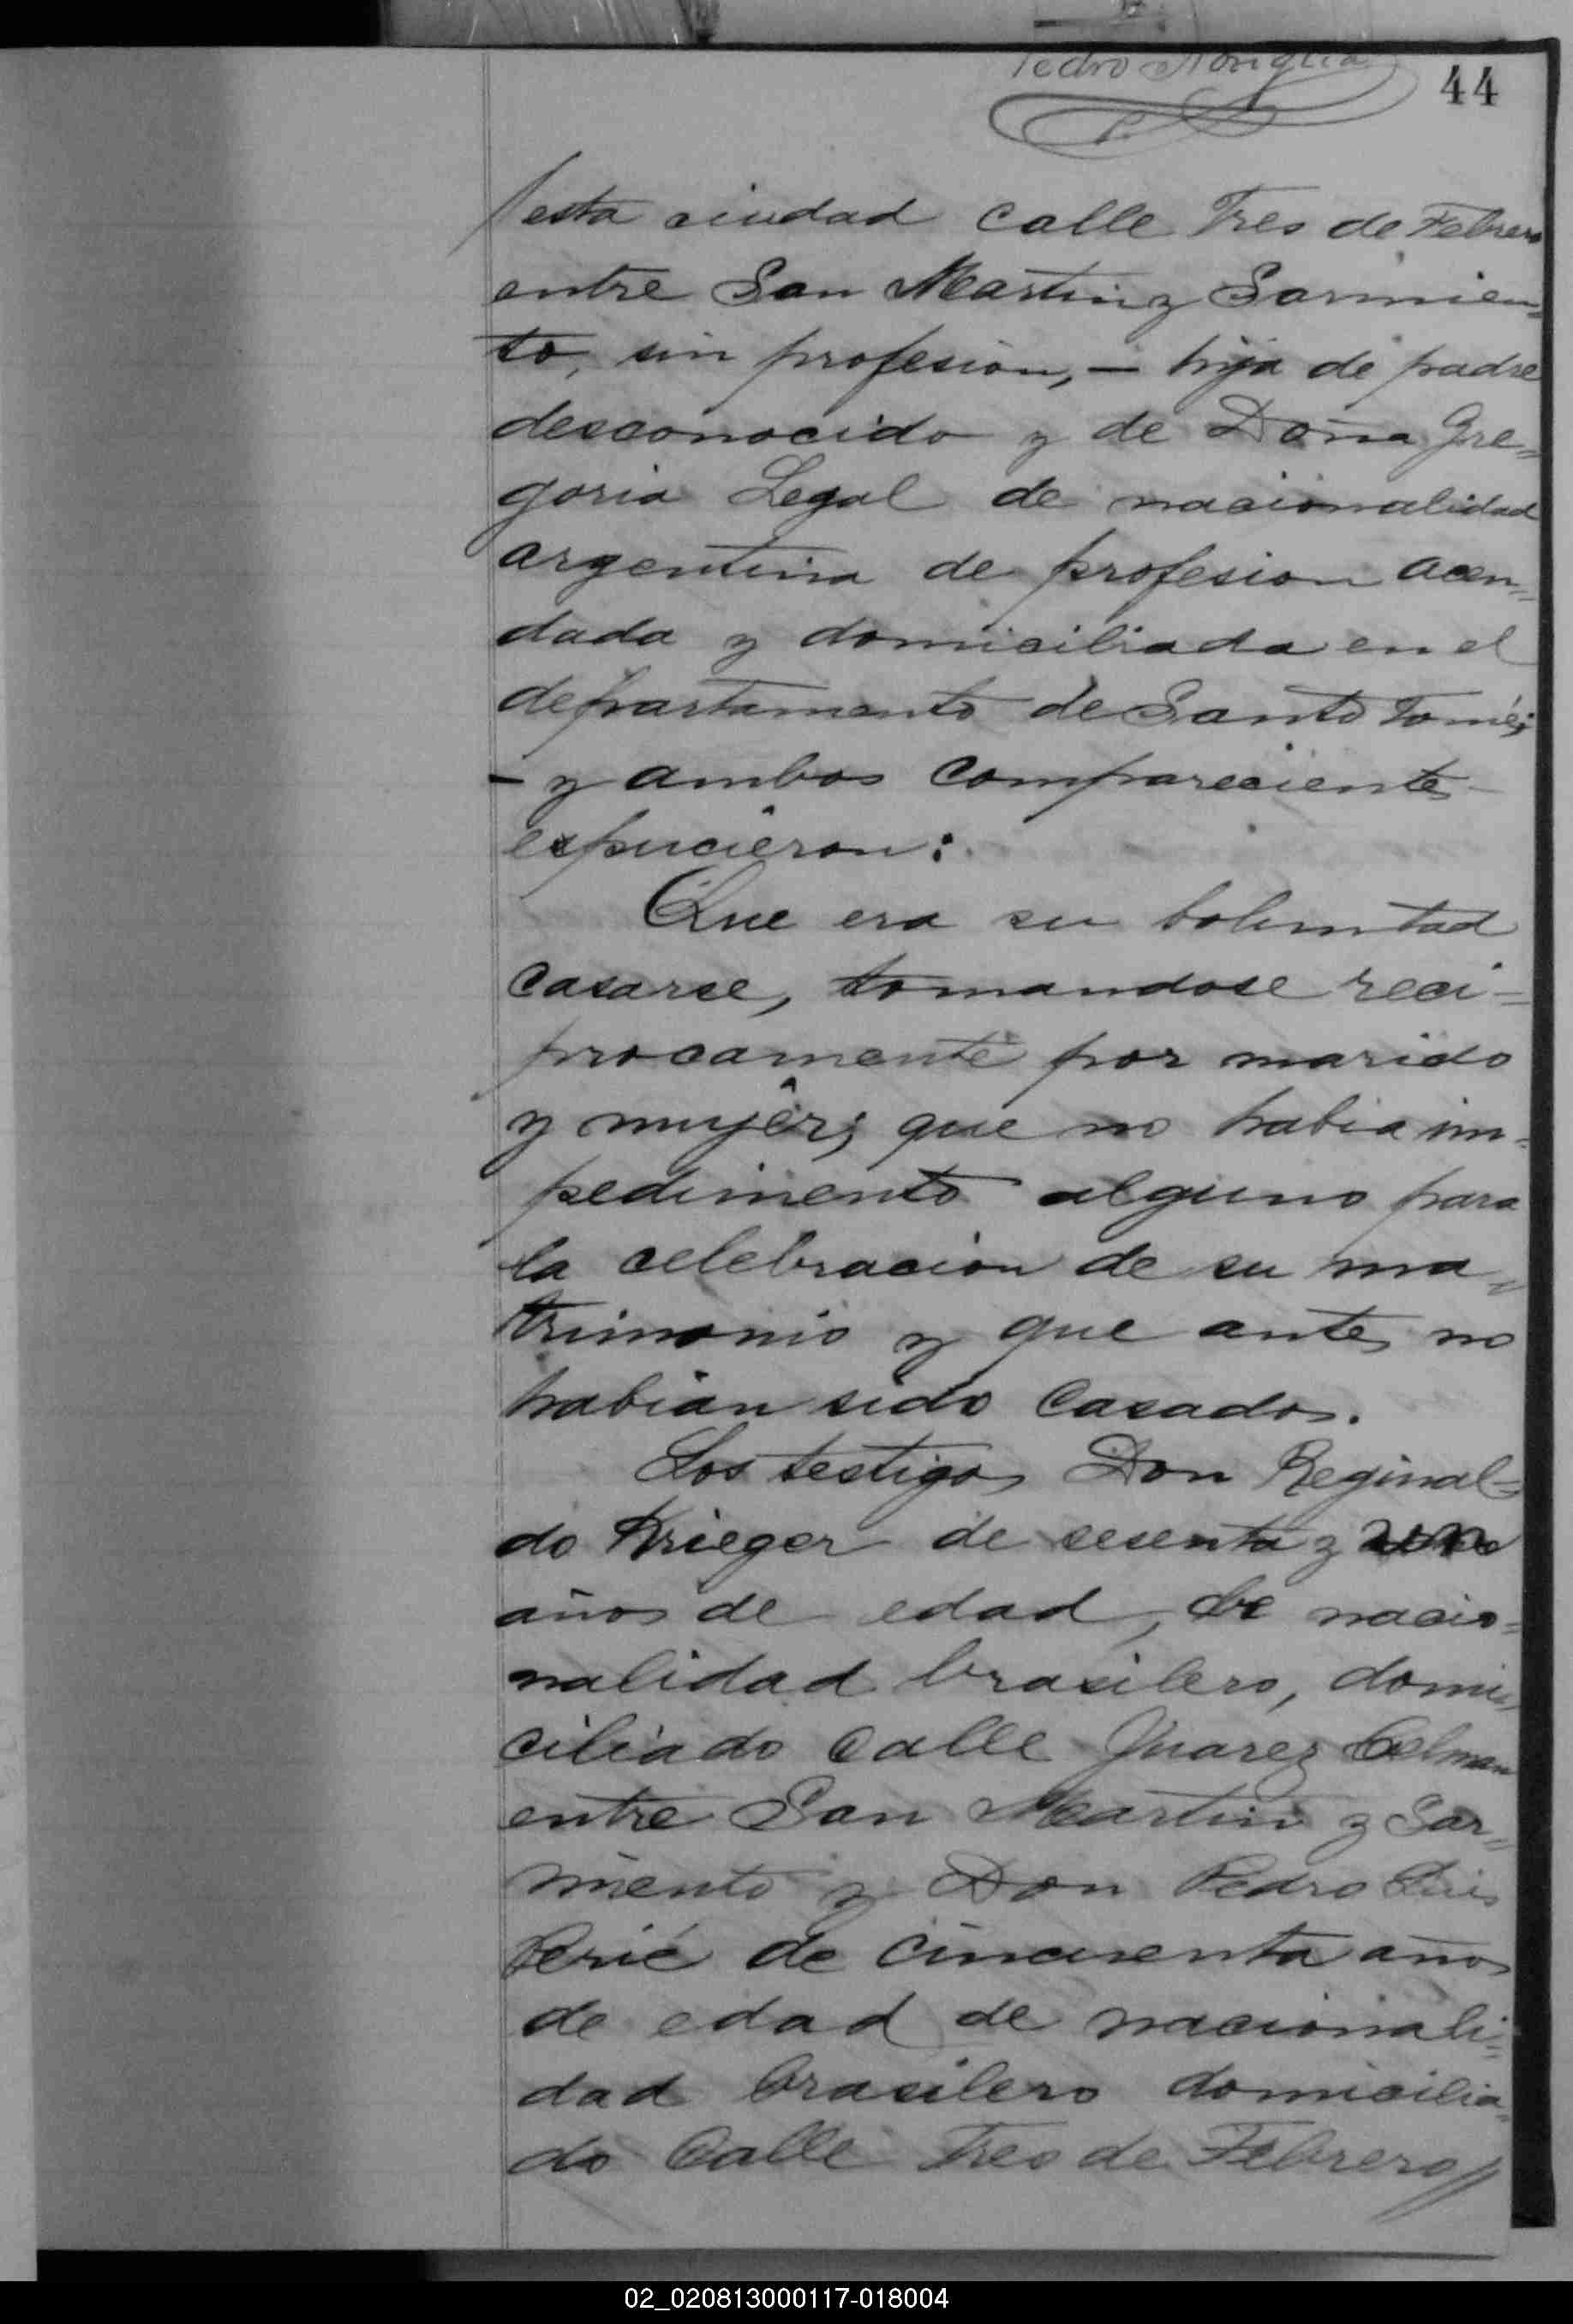 Pedro Noriglia
44
esta ciudad calle Tres de Febrero
entre San Martin y Sarmien=
to, sin profesion, — hija de padre
desconocido y de Doña Gre=
goria Legal de nacionalidad
argentina de profesion acen=
dada y domiciliada en el
departamento de Santo Tomé;
— y ambos comparecientes
expucieron:
Que era su boluntad
casarse, tomandose reci=
procamente por marido
y mujer; que no habia im=
pedimento alguno para
la celebracion de su ma=
trimonio y que antes no
habian sido casados.
Los testigos Don Reginal=
do Krieger de sesenta y uno
años de edad, de nacio=
nalidad brasilero, domi=
ciliado calle Juarez Celman
entre San Martin y Sar=
miento y Don Pedro Luis
de cincuenta años
de edad de nacionali=
dad brasilero domicilia=
do Calle Tres de Febrero//
02_020813000117-018004